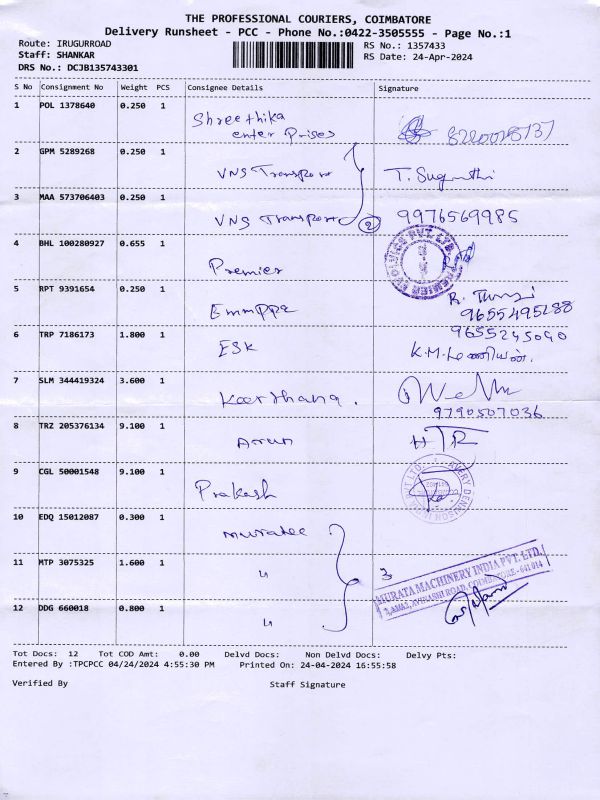 THE PROFESSIONAL COURIERS, COIMBATORE
Delivery Runsheet - PCC - Phone No.:0422-3505555 - Page No.:1
Route: IRUGURROAD RS No.: 1357433
Staff: SHANKAR RS Date: 24-Apr-2024
DRS No.: DCJB135743301
S No Consignment No Weight PCS Consignee Details Signature
1 POL 1378640 0.250 1 Shreethika
enter Prises
2 GPM 5289268 0.250 1 VNS Transport T. Suganthi
3 MAA 573706403 0.250 1 VNS Transport 2 9976569985
4 BHL 100280927 0.655 1 Premier
5 RPT 9391654 0.250 1 Emmppe
6 TRP 7186173 1.800 1 ESK 9655245090
K.M.மணியன்.
7 SLM 344419324 3.600 1 Keerthana.
9790507036
8 TRZ 205376134 9.100 1 Arun
9 CGL 50001548 9.100 1 Prakash
AVERY DENNISON
10 EDQ 15012087 0.300 1 muratec
11 MTP 3075325 1.600 1 3
MURATA MACHINERY INDIA PVT. LTD.
AVINASHI ROAD, COIMBATORE - 641 014
12 DDG 660018 0.800 1
Tot Docs: 12 Tot COD Amt: 0.00 Delvd Docs: Non Delvd Docs: Delvy Pts:
Entered By :TPCPCC 04/24/2024 4:55:30 PM Printed On: 24-04-2024 16:55:58
Verified By Staff Signature